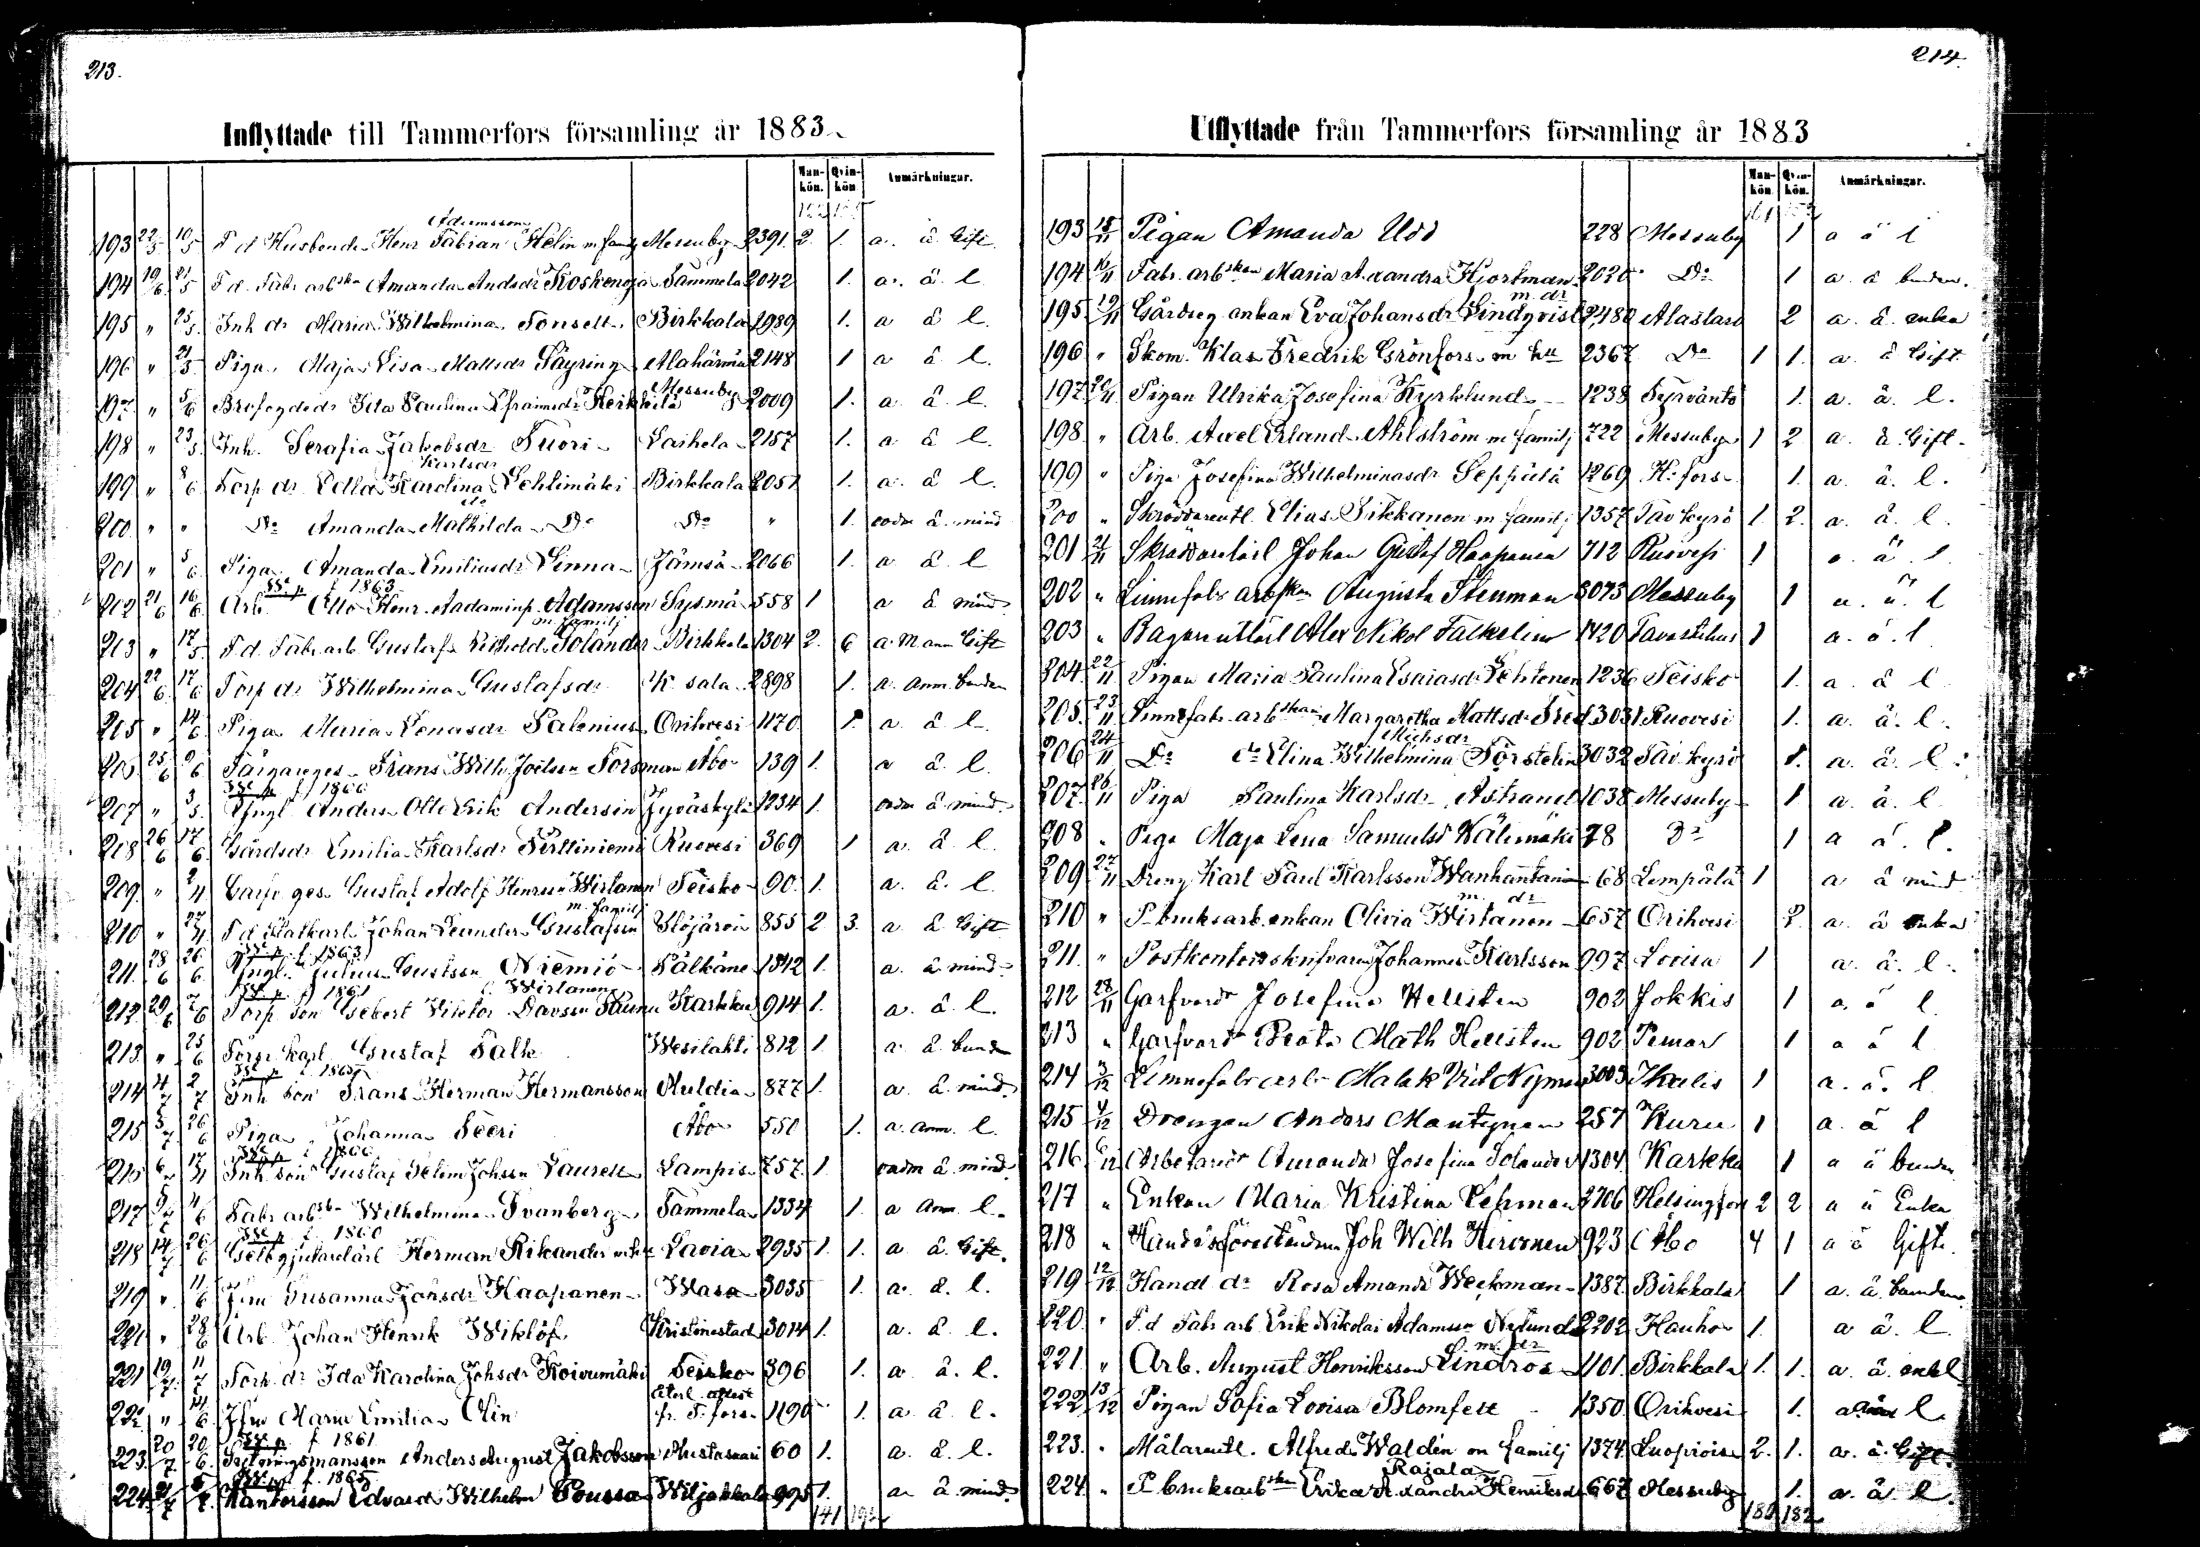 213.
Inflyttade till Tammerfors församling år 1883
Mankön. Qvinkön Anmärkningar.
Adamsson
193 22/5 10/5 F d Husbonde Henr Fabian Helin m famlj Messuby 2391 2. 1. a. å. Gift
194 19/6 21/5 F. d. Fabr arbskn Amanda Andsdr Koskenoja Tammela 2042 1. a. å. l.
195 " 25/5 Inh dr Maria Wilhelmina Tonsell Birkkala 1989 1. a å l.
196 " 21/5 Piga Maja Lisa Mattsdr Säyring Alahärmä 2148 1 a å l.
197 " 5/6 Brofogdedr Ida Paulina Efraimsdr Heikkilä Messuby 2009 1. a å l.
198 " 23/5 Inh. Serafia Jakobsdr Tuori Laihela 2157 1. a å l.
Karlsdr
199 " 8/6 Torp dr Edla Karolina Lehtimäki Birkkala 2051 1. a. å l
200 " " Do Amanda Mathilda Do Do " 1. a å mind
201 " 5/6 Piga Amanda Emiliasdr Linna Jämsä 2066 1. a å l
f 1863
202 21/6 16/6 Arb Otto Henr. Aadaminp. Adamsson Sysmä 558 1 a å mind.
m. familj
203 " 17/5 F. d. Fabr. arb Gustaf Solander Birkkala 1304 2. 6 a. m anm Gift
204 22/6 17/6 Torp dr Wilhelmina Gustafsdr K. sala 2898 1. a. anm. bunden
205 " 14/6 Piga Maria Lenasdr Salenius Orihvesi 1170 1. a å l.
206 25/6 9/6 Färgareges. Frans Wilh Joelsson Forsman Åbo 139 1. a å l.
f 1866
207 " 3/5 Yngl Anders Otto Erik Andersin Jyväskylä 1234 1. å mind.
208 26/6 17/6 Gårdsdr Emilia Karlsdr Pirttiniemi Ruovesi 369 1 a. å l.
209. " 2/4 Garfv. ges. Gustaf Adolf Henrss Wirtanen Teisko 90. 1. a. å. l.
m. familj
210 " 27/4 F. d. Statkarl Johan Leander Gustafsson Ylöjärvi 855 2 3. a å Gift
f 1863
211. 28/6 26/6 Yngl. Julius Gustsson Niemiö Pälkäne 1342 1. a. å mind.
f 1861 Wirtanen
212. 29/6 7/6 Torp son Gebert Viktor Davsson Karkku 914 1. a. å. l.
213. " 25/6 Torp karl Gustaf Falk Wesilahti 812 1. a. å bunden
f. 1865
214 4/7 2/7 Inh son Frans Herman Hermansson Multia 877 1. a. å mind.
215 5/7 26/6 Piga Johanna Seeri Åbo 550 1. a. anm. l.
f 1866
216 6/7 17/4 Inh son Gustaf Selim Johsson Laurell Lampis 757. 1. å mind.
217 9/7 4/6 Fabr arbsk Wilhelmina Svanberg Tammela 1334 1. a anm l.
f. 1860
218 14/7 26/6 Gelbgjutarlärl Herman Rikander Lavia 2935 1. 1. a å. Gift.
219 " 11/6 Jfru Susanna Johsdr Haapanen Wasa 3035 1. a. å. l.
220 " 28/6 Arb. Johan Henrik Wiklöf Kristinestad 3014 1. a. å. l.
221 19/7 11/7 Torp. dr Ida Karolina Johsdr Koivumäki Teisko 396 1. a å. l.
222 " 14/6 Jfru Maria Emilia Elin fr. T:fors 1190 1. a. å. l.
f 1861
223. 20/7 20/6 Anders August Jakobsson Mustasaari 60 1. a. å. l.
f. 1865
224. 21/7 Kantorsson Edvard Wilhelm Poussa Wiljakkala 995 1. a å mind.
141 192

214.
Utflyttade från Tammerfors församling år 1883
Mankön Qvinkön. Anmärkningar.
193 15/11 Pigan Amanda Udd 228 Messuby 1 a å l
194 16/11 Fabr. arbskan Maria Alexandra Hjortman 2030 Do 1 a. å bunden.
m. dr
195 19/11 Gårdseg. enkan Eva Johansdr Lindqvist 2480 Alastaro 2 a. å. enka
196 " Skom. Klas Fredrik Grönfors m hu 2367 Do 1 1. a. å Gift.
197 20/11 Pigan Ulrika Josefina Kyrklund 1238 Tyrväntö 1. a. å. l.
198. " Arb. Axel Erland Ahlström m familj 722 Messuby 1 2 a. å. Gift.
199 " Piga Josefina Wilhelminasdr Seppälä 1269 H:fors 1. a. å. l.
200 " Skräddareutl. Elias Sikkanen m familj 1357 Tav kyrö 1. 2. a. å. l.
201 21/11 Skräddarelärl Johan Gustaf Haapanen 712 Ruovesi 1 a. å. l.
202 " Linnefabr arbskan Augusta Stenman 3073 Messuby 1 a. å. l
203 " Bagareutlärl Alex Nikol Falkelin 1420 Tavastehus 1 a. å. l
204. 22/11 Pigan Maria Paulina Esaiasdr Lehtonen 1236 Teisko 1. a. å l
205. 23/11 Linnefabr. arbskan Margaretha Mattsdr Fred 3031 Ruovesi 1. a. å. l.
Michsdr
206 24/11 Do do Elina Wilhelmina Törstelin 3032 Tav kyrö 1. a. å. l.
207. 26/11 Piga Paulina Karlsdr Åstrand 1038 Messuby 1 a. å. l
208 " Piga Maja Lena Samuelsd Kälimäki 78 Do 1 a å. l.
209 27/11 Dreng Karl Paul Karlsson Wanhantanen 68 Lempälä 1 a å mind
m. dr
210 " P. bruksarb. enkan Olivia Wirtanen 657 Orihvesi 2 a. å enka
211. " Postkontorsskrifvaren Johannes Karlsson 997 Lovisa 1 a. å. l.
212 28/11 Garfvardr Josefina Hellsten 902 Jokkis 1 a. å l
213 " Garfvardr Beata Math Hellsten 902 Pemar 1 a å l
214 3/12 Linnefabr arb Malak Vict Nyman 3003 Ikalis 1 a. å. l
215 4/12 Drengen Anders Mantynen 257 Kuru 1 a. å l
216 6/12 Arbetaredr Amanda Josefina Solander 1304 Karkku 1 a å bunden
217 " Enkan Maria Kristina Lehman 2706 Helsingfors 2 2 a å Enka
218 " Joh Wilh Hirvonen 923 Åbo 4 1 a å Gift.
219 12/12 Handl dr Rosa Amanda Weckman 1387 Birkkala 1 a. å. bunden.
220 " F. d Fabr arb Erik Nikolai Adamsson Nylund 2202 Hauho 1. a å. l.
m. dr
221. " Arb. August Henriksson Lindros 1101. Birkkala 1. 1. a. å. enkl
222 13/12 Pigan Sofia Lovisa Blomfelt 1350 Orihvesi 1. a l.
223. " Målareutl. Alfred Waldén m familj 1374 Luopiois 2. 1. a. å. Gift.
Rajala
224. " P bruksarbskn Erika Alexandra Henriksdr 667 Messuby 1. a. å. l.
180 182